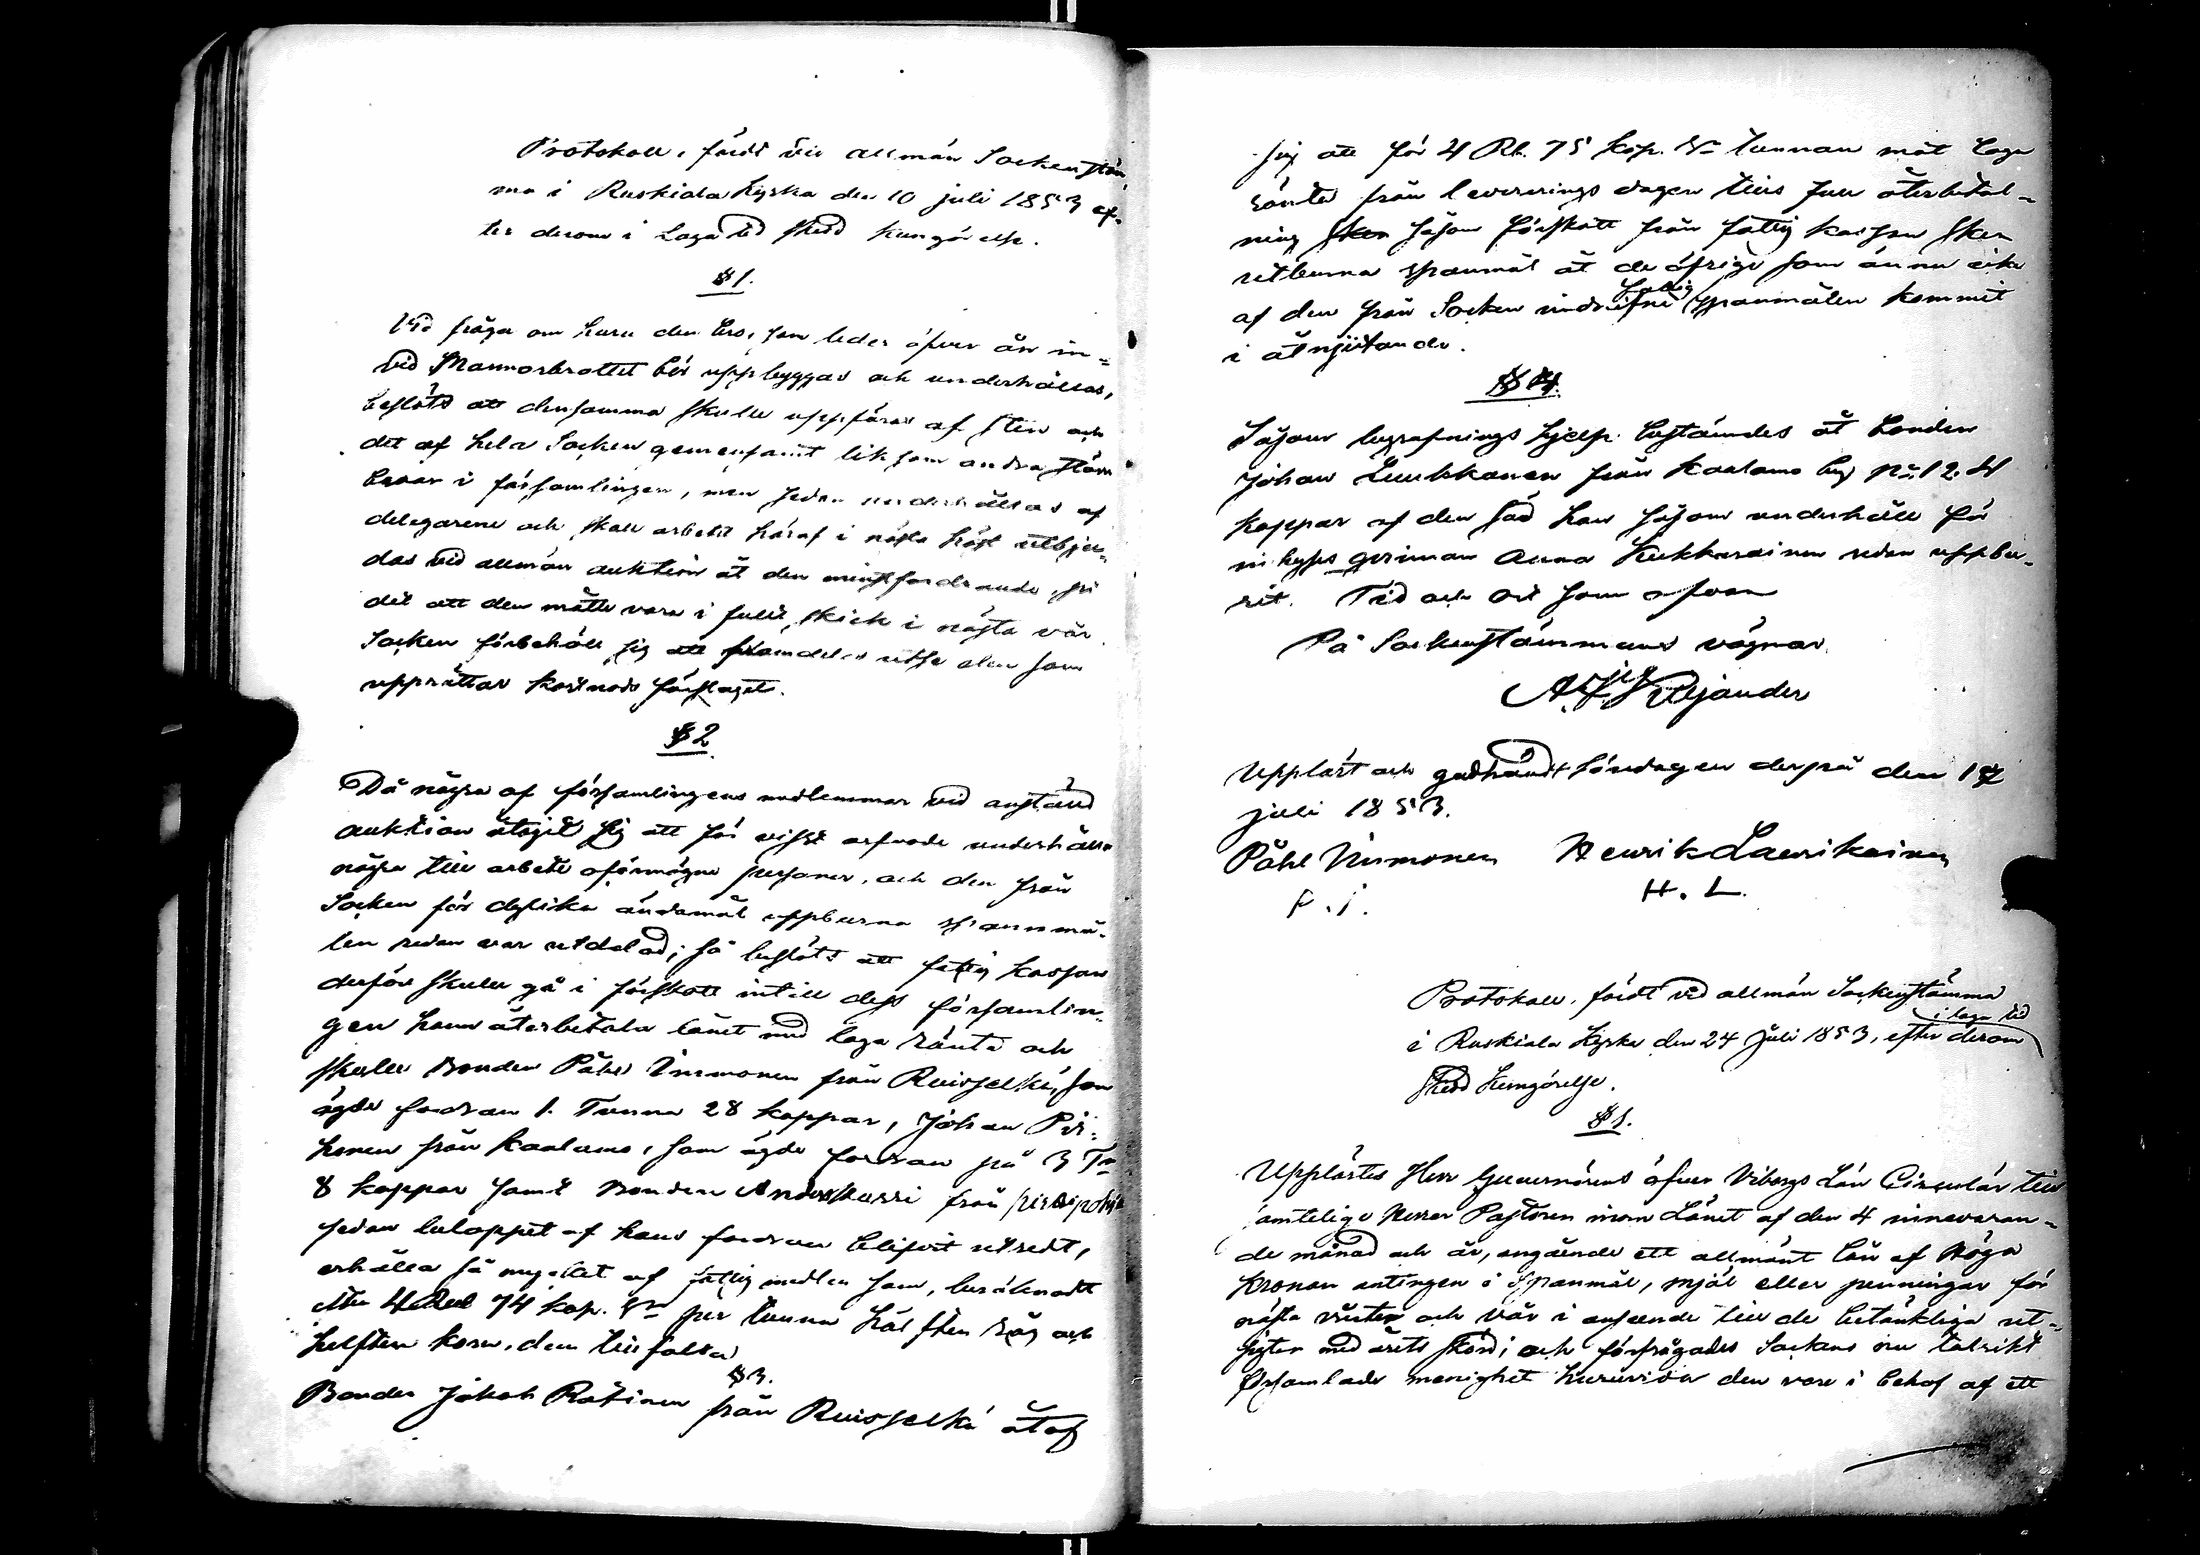 Protokoll, fördt vid allmän Sockenstäm,
ma i Ruskiala Kyrka den 10 juli 1853 ef-
ter derom i Laga tid skedd kungörelse.
§ 1.
Vid fråga om huru den bro, som leder öfver ån in-
vid Marmorbrottet bör uppbyggas och underhållas,
beslöts att densamma skulle uppföras af sten och
det af hela Socken gemensamt liksom andra större
broar i församlingen, men sedan underhållas af
delegarene och skall arbetet häraf i nästa höst utbju-
das vid allmän auktion åt den minstfordrande,
det att den måtte vara i fullt skick i nästa vår
Socken förbehöll sig att framdeles utse den som
upprättar kostnads förslaget.
§ 2.
Då några af församlingens medlemmar vid anstäld
auktion åtagit sig att för visst arfvode underhålla
några till arbete oförmögne personer, och den från
Socken för dylika ändamål uppburna spannmå-
len redan var utdelad; så beslöts att fattig kassan
derför skulle gå i förskott intill dess församlin-
gen hann återbetala lånet med laga ränta och
skulle Bonden Påhl Immonen från Ruisselkä, som
ägde fordran 1. Tunna 28 kappar, Johan Pir-
honen från Kaalamo, som ägde fordran på 3 Tr
8 kappar samt Bonden Anders Karri från
sedan beloppet af hans fordran blifvit utredt,
erhålla så mycket af fattig medlen som, beräknadt
efter 4 Rubl 74 kop. Sr per tunna hälften råg och
helften korn, dem tillfaller
§ 3.
Bonden Jakob Rötinen från Ruisselkä åtog
sig att för 4 Rb. 75 kop. Sr tunnan mot laga
ränta från levererings dagen till full återbetal-
ning såsom förskott från fattig kassan
utlemna spanmål åt de öfrige som ännu icke
af den från Socken indrifne fattig spanmålen kommit
i åtnjutande.
§ 4.
Såsom begrafnings hjelp bestämdes åt Bonden
Johan Luukkonen från Kaalamo by No 12. 4
kappar af den säd han såsom underhåll för
inhyses qvinnan Anna Kukkarainen redan uppbu-
rit. Tid och ort som ofvan
På Sockenstämmans vägnar.
Aejmelæus
Uppläst och godkändt söndagen derpå den 17
juli 1853.
Påhl Immonen Henrik Laurikainen
P. I. H. L.
Protokoll, fördt vid allmän Sockenstämma
i Ruskiala Kyrka den 24 Juli 1853, efter derom i laga tid
skedd Kungörelse.
§ 1.
Upplästes Herr Guvernörens öfver Viborgs Län Cirkulär till
samtelige Herrar Pastorer inom Länet af den 4 innevaran-
de månad och år, angående ett allmänt lån af Höga
Kronan antingen i Spanmål, mjöl eller penningar för
nästa vinter och vår i anseende till de betänkliga ut-
sigter med årets skörd; och förfrågades Sockens nu talrikt
församlade menighet huruvida den vore i behof af ett